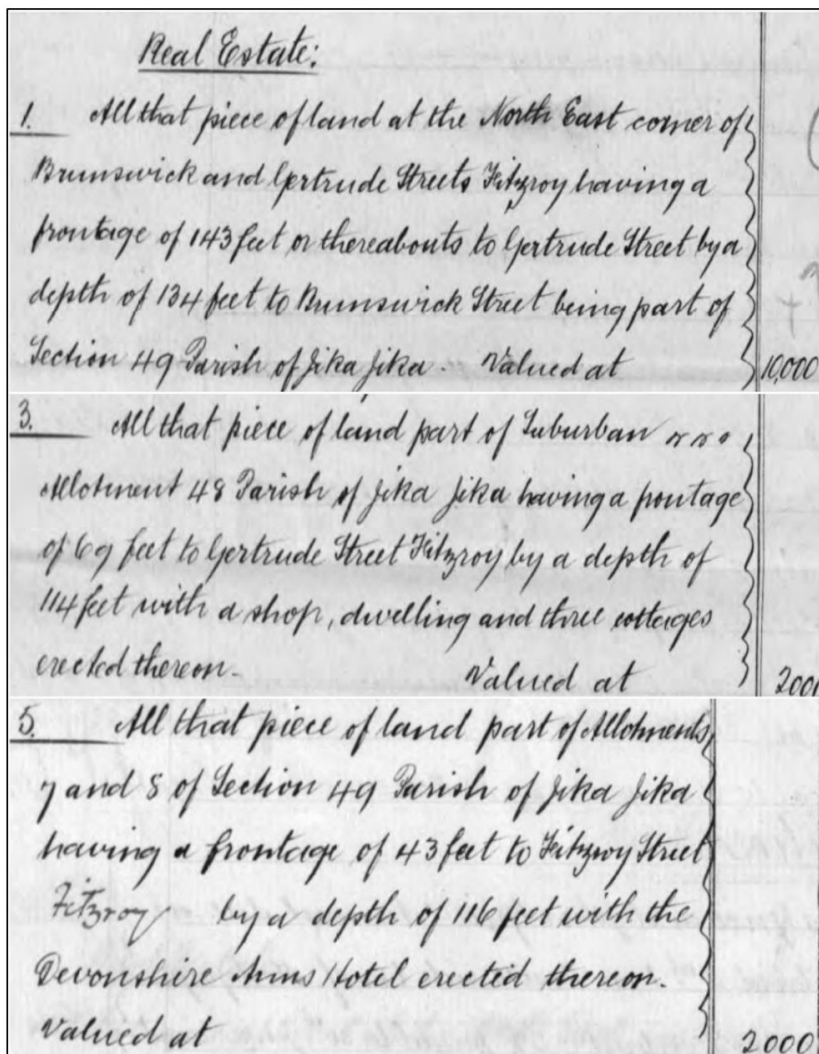 Real Estate:
1. All that piece of land at the North East corner of
Brunswick and Gertrude Streets Fitzroy having a
frontage of 143 feet or thereabouts to Gertrude Street by a
depth of 134 feet to Brunswick Street being part of
Section 49 Parish of Jika Jika. Valued at 10,000
3. All that piece of land part of Suburban
Allotment 48 Parish of Jika Jika having a frontage
of 69 feet to Gertrude Street Fitzroy by a depth of
114 feet with a shop, dwelling and three cottages
erected thereon. Valued at 200
5. All that piece of land part of Allotments
7 and 8 of Section 49 Parish of Jika Jika
having a frontage of 43 feet to Fitzroy Street
Fitzroy by a depth of 116 feet with the
Devonshire Arms Hotel erected thereon.
Valued at 2000